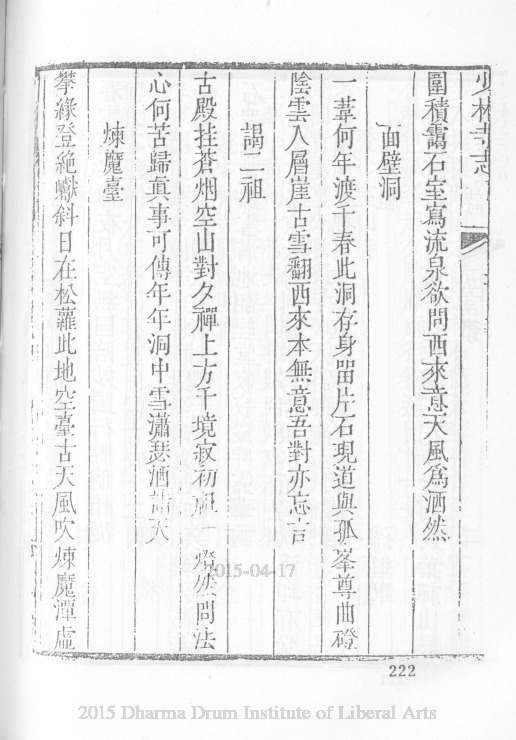 少林寺志
圍積靄石室寫流泉欲問西來意天風爲洒然
面壁洞
一葦何年渡千春此洞存身留片石現道與孤峯尊曲磴
陰雲入層崖古雪翻西來本無意吾對亦忘言
謁二祖
古殿挂蒼烟空山對夕禪上方千境寂初祖一燈然問法
心何苦歸眞事可傳年年洞中雪瀟瑟洒諸天
煉魔臺
攀緣登絶巘斜日在松蘿此地空臺古天風吹煉魔潭虛
222
2015-04-17
2015 Dharma Drum Institute of Liberal Arts